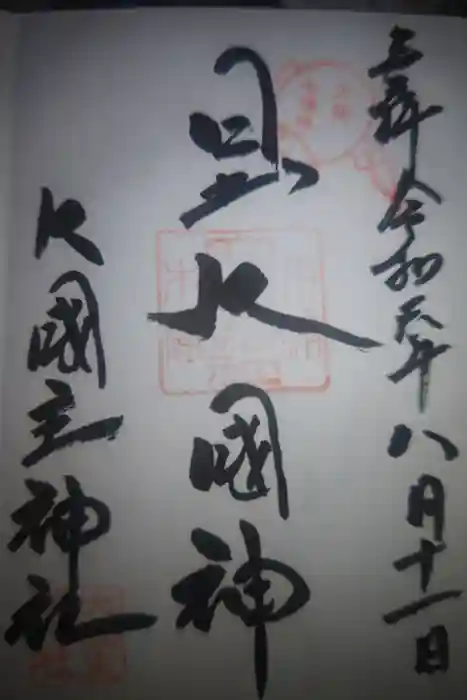 奉拝 令和元年八月十一日
日出大國神
大國主神社